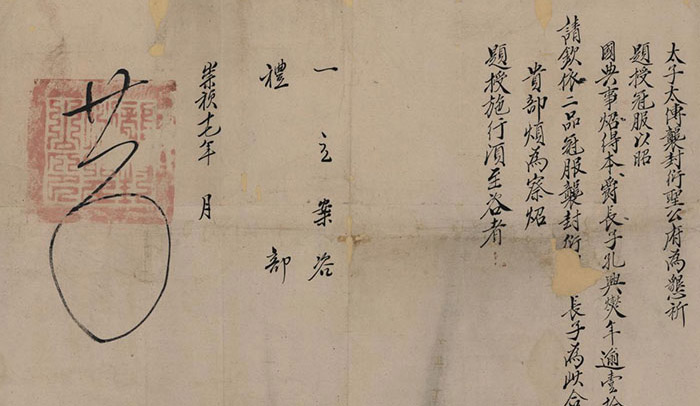 太子太傅襲封衍聖公府為懇祈
題授冠服以昭
國典事炤得本爵長子孔興燮年逾壹拾
請欽依二品冠服襲封衍 長子為此合
貴部煩為察炤
題授施行須至咨者
一立案咨
禮部
崇禎十七年 月